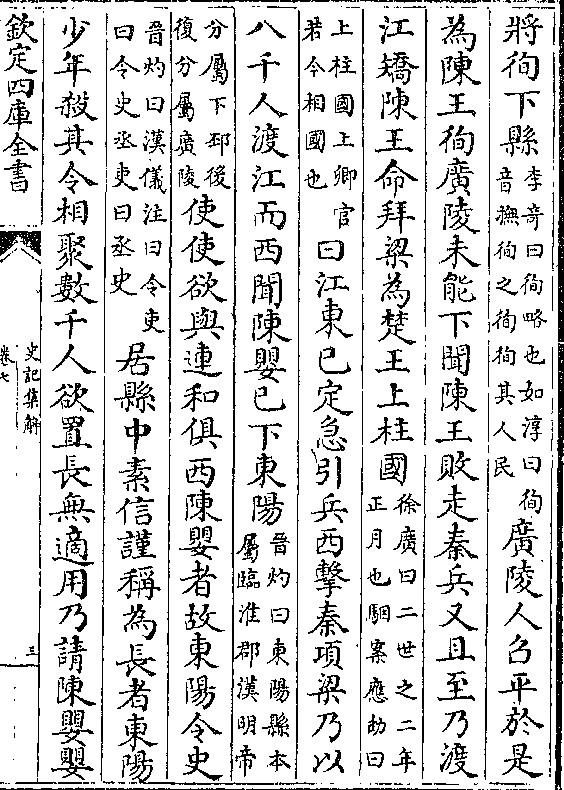 將徇下縣李竒曰徇略也如淳曰徇音撫徇之徇徇其人民廣陵人召平於是
為陳王徇廣陵未能下聞陳王敗走秦兵又且至乃渡
江矯陳王命拜梁為楚王上柱國徐廣曰二世之二年正月也駰案應劭曰
上柱國上卿官若今相國也曰江東已定急引兵西擊秦項梁乃以
八千人渡江而西聞陳嬰已下東陽晉灼曰東陽縣本屬臨淮郡漢明帝
分屬下邳後復分屬廣陵使使欲與連和俱西陳嬰者故東陽令史
晉灼曰漢儀注曰令吏曰令史丞吏曰丞史居縣中素信謹稱為長者東陽
少年殺其令相聚數千人欲置長無適用乃請陳嬰嬰
欽定四庫全書
史記集解
卷七
三